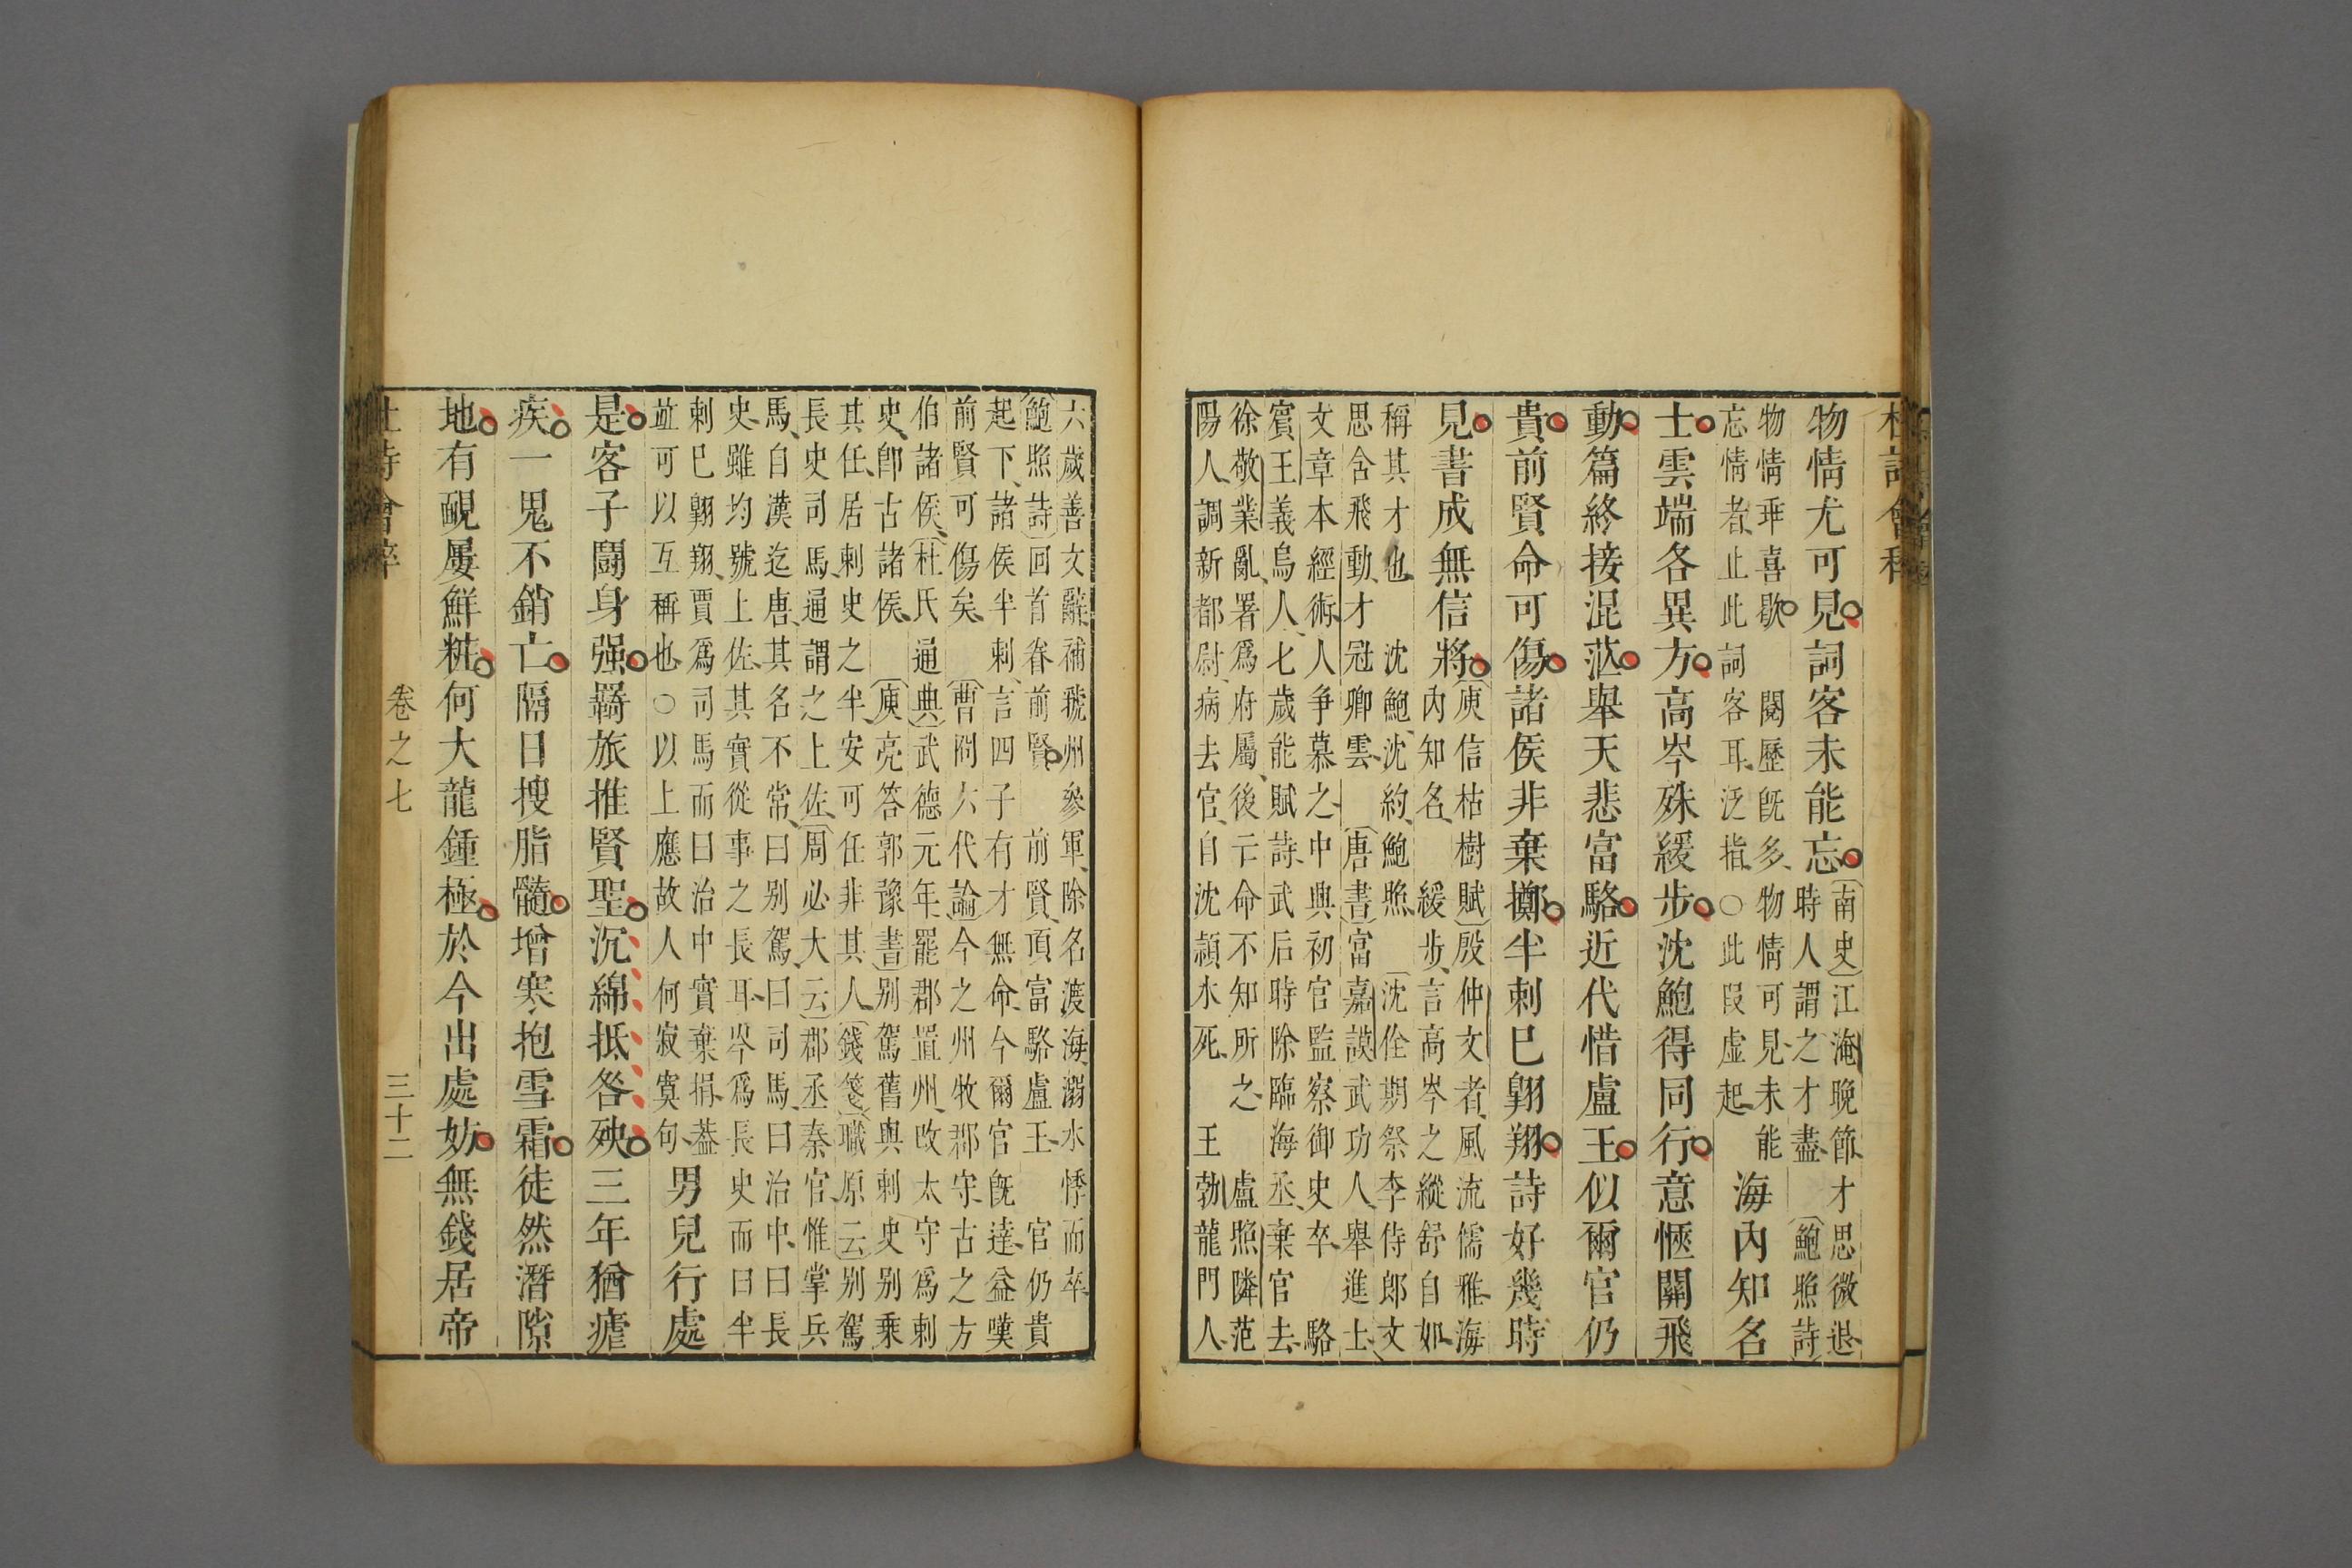 物情尤可見詞客未能忘
〔南史〕江淹晚節才思微退
時人謂之才盡　〔鮑照詩〕
物情乖喜歇　閱歷旣多物情可見未能
忘情者止此詞客耳泛指○此叚虛起
海內知名
士雲端各異方高岑殊緩步沈鮑得同行意愜關飛
動篇終接混茫舉天悲富駱近代惜盧王似爾官仍
貴前賢命可傷諸侯非棄擲半刺巳翺翔詩好幾時
見書成無信將
〔庾信枯樹賦〕殷仲文者風流儒雅海
內知名　緩步言高岑之縱舒自如
稱其才也　沈鮑沈約鮑照　〔沈佺期祭李侍郎文
思含飛動才冠卿雲　〔唐書〕富嘉謨武功人舉進士
文章本經術人爭慕之中興初官監察御史卒　駱
賓王義烏人七歲能賦詩武后時除臨海丞棄官去
徐敬業亂署爲府屬後亡命不知所之　盧照隣范
陽人調新都尉病去官自沈潁水死　王勃龍門人
六歲善文辭補虢州參軍除名渡海溺水悸而卒
〔鮑照詩〕回首眷前賢　前賢頂富駱盧王　官仍貴
起下諸侯半刺言四子有才無命今爾官旣達益嘆
前賢可傷矣　〔曹冏六代論〕今之州牧郡守古之方
伯諸侯〔杜氏通典〕武德元年罷郡置州改太守爲刺
史卽古諸侯　〔庾亮答郭豫書〕別駕舊與刺史別乗
其任居刺史之半安可任非其人〔錢箋〕職原云別駕
長史司馬通謂之上佐〔周必大云〕郡丞秦官惟掌兵
馬自漢迄唐其名不常曰別駕曰司馬曰治中曰長
史雖均號上佐其實從事之長耳岑爲長史而曰半
刺巳翺翔賈爲司馬而曰治中實棄捐葢
竝可以互稱也○以上應故人何寂寞句
男兒行處
是客子鬭身强羇旅推賢聖沉綿抵咎殃三年猶瘧
疾一鬼不銷亡隔日搜脂髓增寒抱雪霜徒然潛隙
地有靦屢鮮粧何大龍鍾極於今出處妨無錢居帝
卷之七　三十二